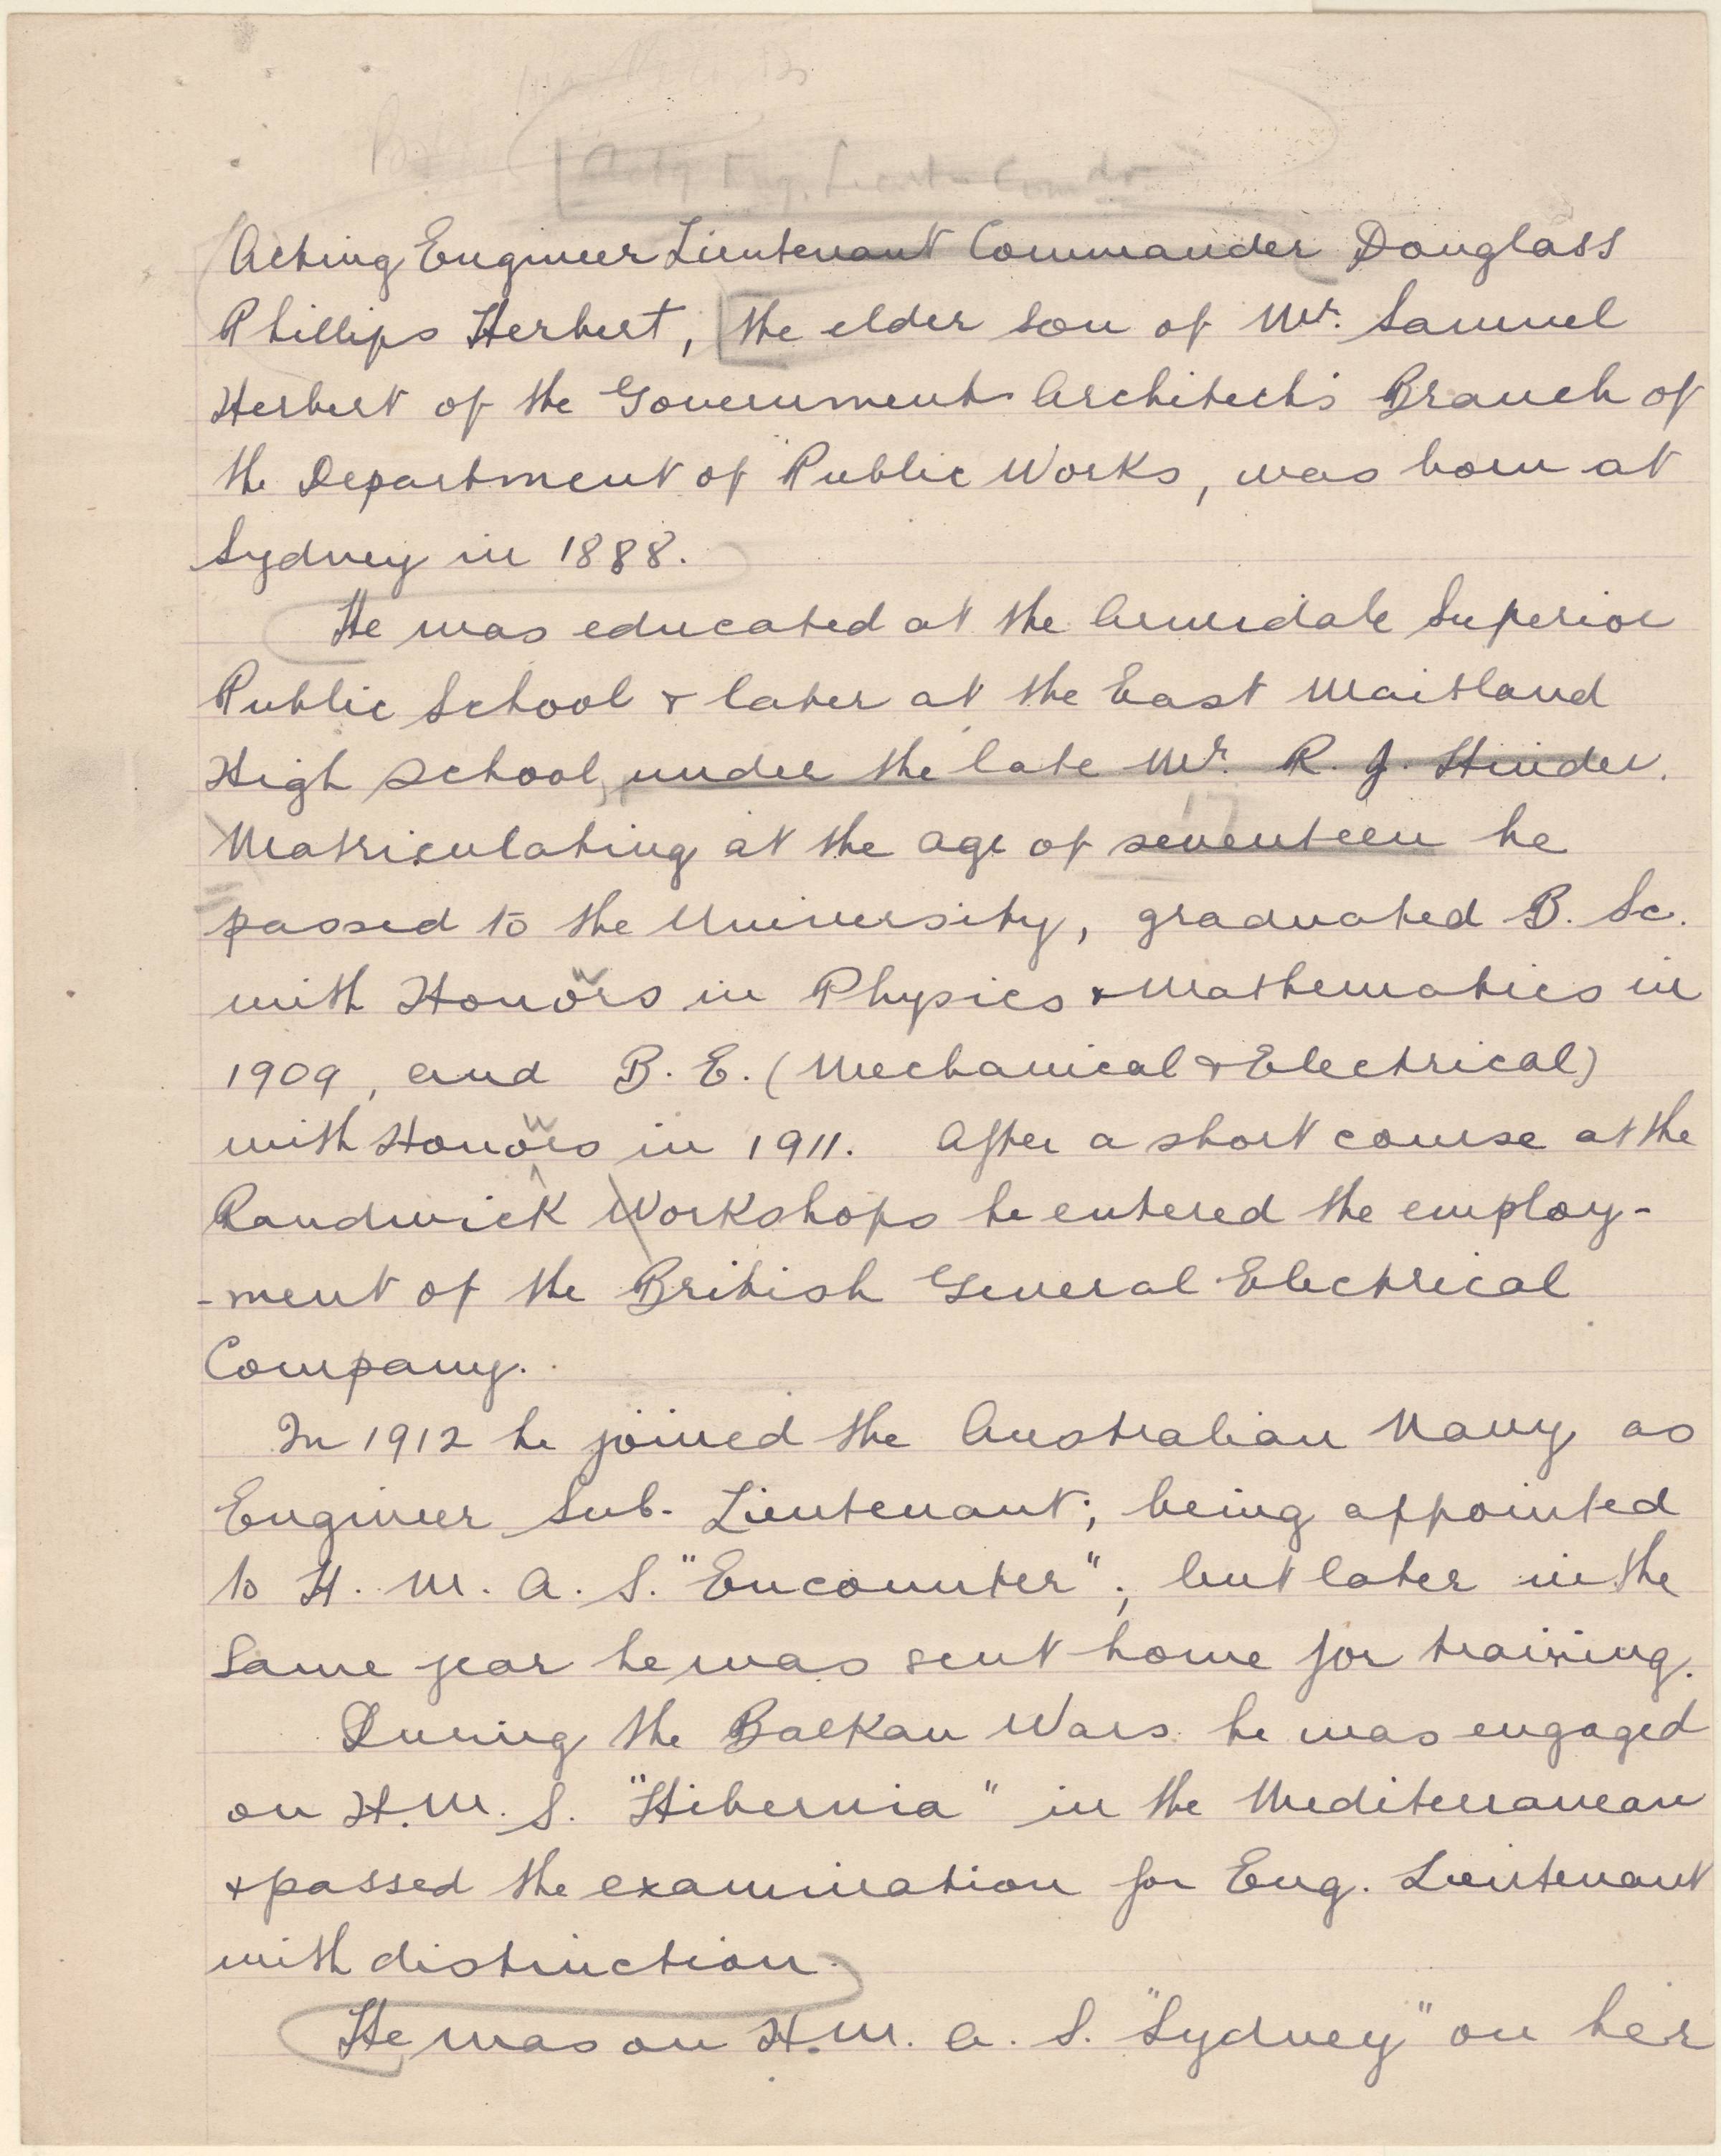 Actg Eng. Lieut - Comdr
Acting Engineer Lieutenant Commander Douglass
Phillips Herbert, the elder son of Mr. Samuel
Herbert of the Government Architect's Branch of
the Department of Public Works, was born at
Sydney in 1888.
He was educated at the Armidale Superior
Public School & later at the East Maitland
High School, under the late Mr. R. J. Hinder.
17
Matriculating at the age of seventeen he
passed to the University, graduated B. Sc.
u
with Honors in Physics & Mathematics in
1909, and B. E. (Mechanical & Electrical)
u
with Honors in 1911. After a short course at the
Randwick Workshops he entered the employ-
-ment of the British General Electrical
Company.
In 1912 he joined the Australian Navy as
Engineer Sub-Lieutenant; being appointed
to H. M. A. S. "Encounter"; but later in the
same year he was sent home for training.
During the Balkan Wars he was engaged
on H.M. S. "Hibernia" in the Mediterranean
& passed the examination for Eng. Lieutenant
with distinction.
He was on H.M. A. S. "Sydney" on her